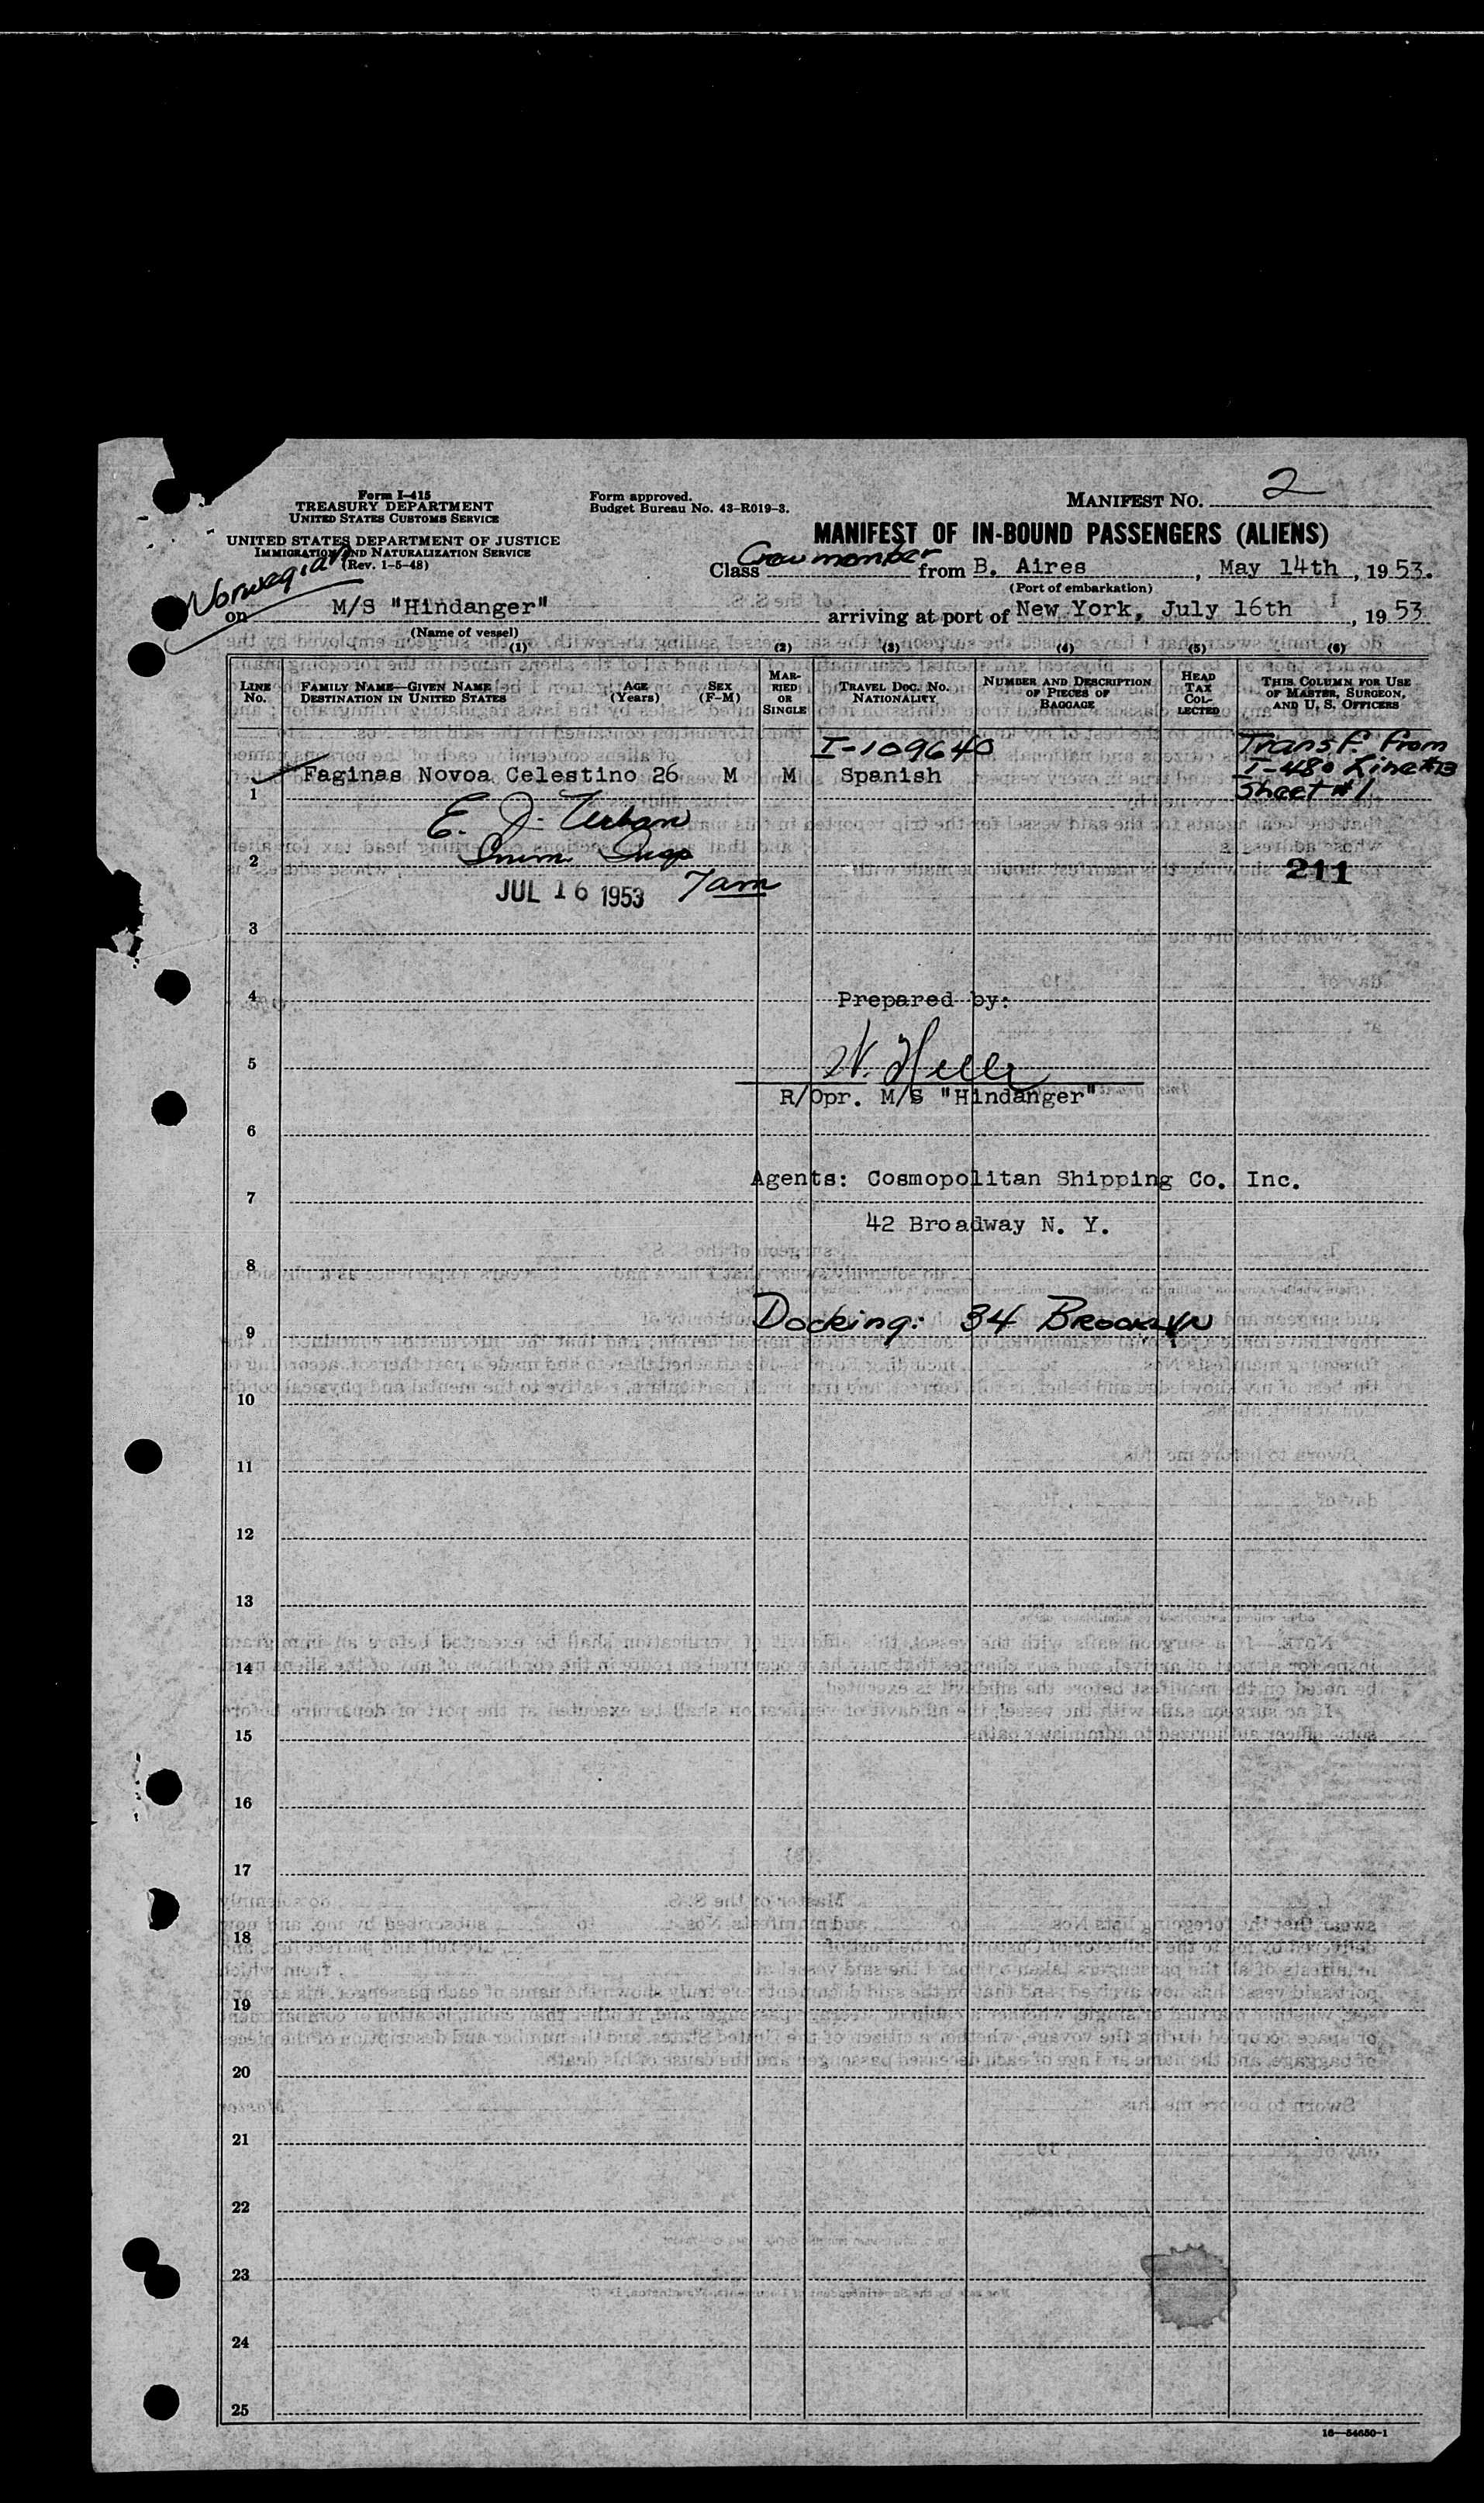 Form I-415
TREASURY DEPARTMENT
UNITED STATES CUSTOMS SERVICE
UNITED STATES DEPARTMENT OF JUSTICE
IMMIGRATION AND NATURALIZATION SERVICE
(Rev. 1-5-48)
Form approved.
Budget Bureau No. 43-R019-3.
MANIFEST No. 2
MANIFEST OF IN-BOUND PASSENGERS (ALIENS)
Class Crewmember from B. Aires, May 14th, 1953.
(Port of embarkation)
Norwegian
on M/S "Hindanger" arriving at port of New York, July 16th, 1953
(Name of vessel)
(1) (2) (3) (4) (5) (6)
LINE No.
FAMILY NAME—GIVEN NAME DESTINATION IN UNITED STATES
AGE (Years)
SEX (F-M)
MARRIED OR SINGLE
TRAVEL DOC. NO. NATIONALITY
NUMBER AND DESCRIPTION OF PIECES OF BAGGAGE
HEAD TAX COLLECTED
THIS COLUMN FOR USE OF MASTER, SURGEON, AND U. S. OFFICERS
I-109640
Transf. from
1 Faginas Novoa Celestino 26 M M Spanish
I-480 Line #13
Sheet #1
E. J. Urban
2 Imm. Insp
211
JUL 16 1953 7am
3
4 Prepared by:
N. Helle
5
R/Opr. M/S "Hindanger"
6
Agents: Cosmopolitan Shipping Co. Inc.
7
42 Broadway N. Y.
8
Docking: 34 BROOKLYN
9
10
11
12
13
14
15
16
17
18
19
20
21
22
23
24
25
16—54650-1